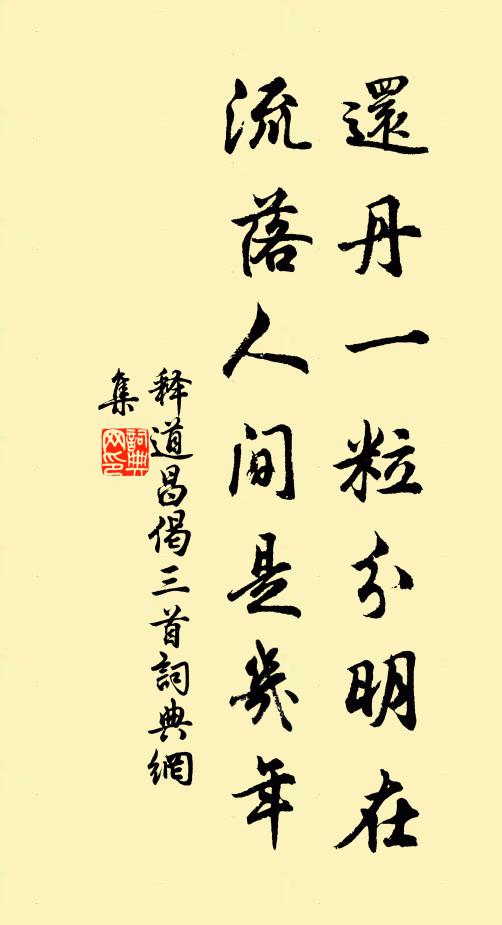 還丹一粒分明在
流落人間是幾年
释道昌偈三首詞典網
集
詞典
网印